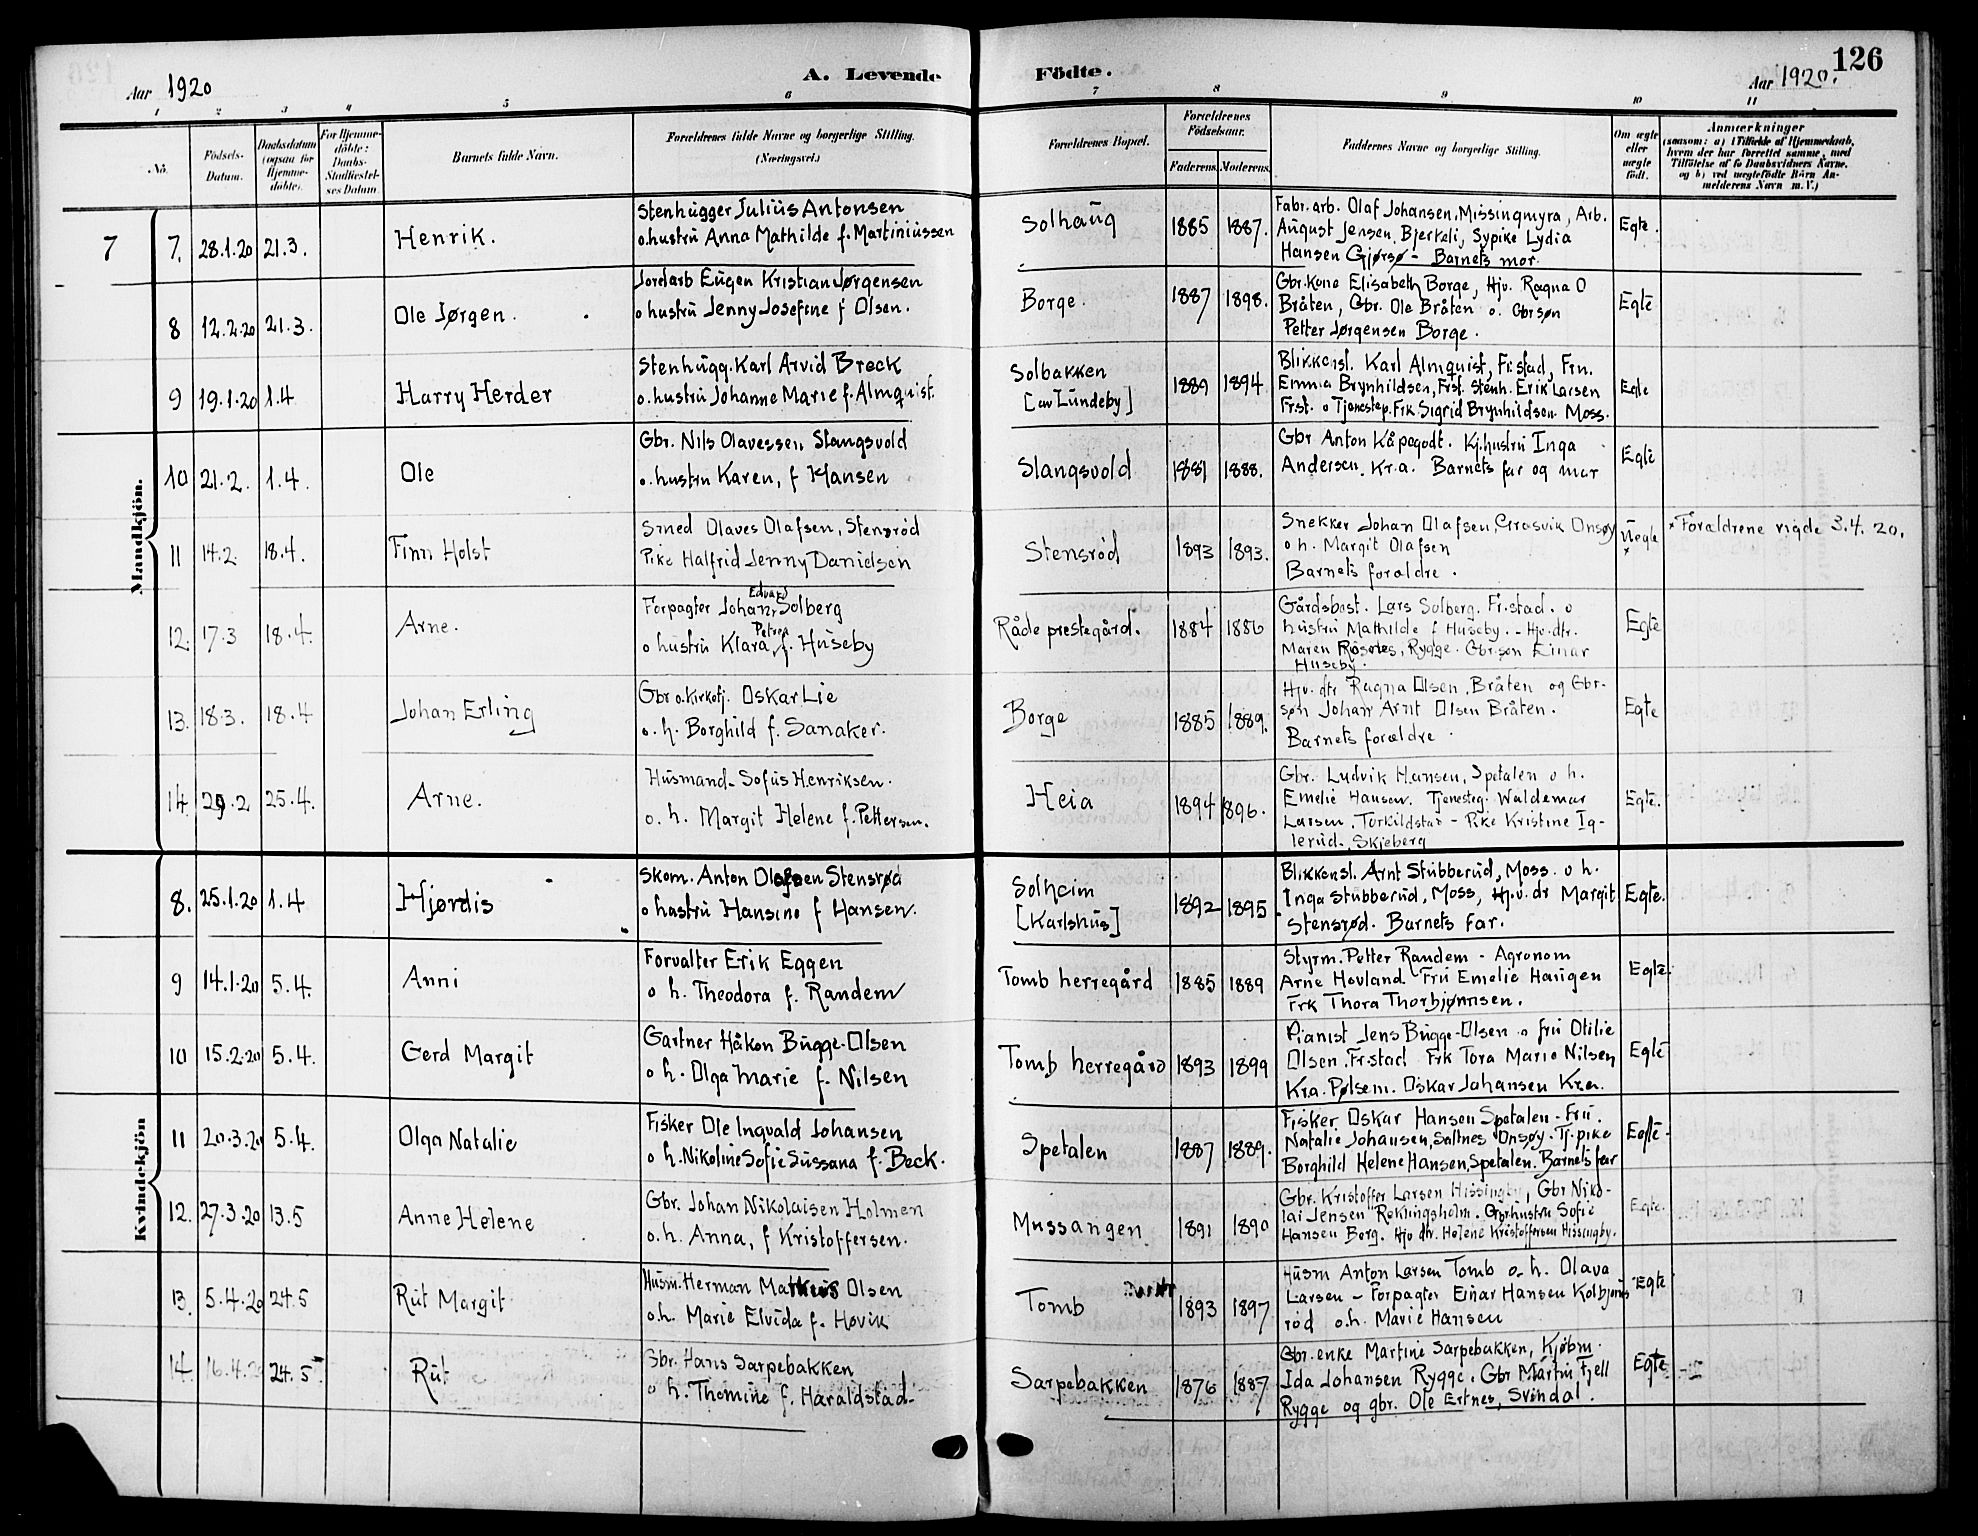 126
Aar 1920
A. Levende
Födte.
Aar 1920.
1 2 3 4 5 6 7 8 9 10 11
No.
Födsels-
Datum.
Daabsdatum
(ogsaa for
Hjemme-
döbte).
For Hjemme-
döbte:
Daabs-
Stadfæstel-
ses Datum
Barnets fulde Navn.
Forældrenes fulde Navne og borgerlige Stilling.
(Næringsvei.)
Forældrenes Bopæl.
Forældrenes
Födselsaar.
Faderens.
Moderens.
Faddernes Navne og borgerlige Stilling.
Om ægte
eller
uægte
födt.
Anmærkninger
(saasom: a) i Tilfælde af Hjemmedaab,
hvem der har forrettet samme, med
Tilföielse af to Daabsvidners Navne,
og b) ved uægtefödte Börn An-
melderens Navn m. V.)
Mandkjön.
7
7. 28.1.20 21.3. Henrik.
Stenhugger Julius Antonsen
o. hustru Anna Mathilde f. Martiniussen
Solhaug 1885 1887.
Fabr. arb. Olaf Johansen, Missingmyra, Arb.
August Jensen, Bjerkeli, Sypike Lydia
Hansen Gjørsø - Barnets mor.
Egte.
8 12.2.20 21.3. Ole Jørgen.
Jordarb Eugen Kristian Jørgensen
o hustru Jenny Josefine f Olsen.
Borge. 1887 1898.
Gbr. Kone Elisabeth Borge, Hjv. Ragna O
Bråten, Gbr. Ole Bråten o. Gbr søn
Petter Jørgensen Borge.
Egte
9 19.1.20 1.4 Harry Herder
Stenhugg. Karl Arvid Breck
o. hustru Johanne Marie f. Almquist.
Solbakken
[av Lundeby]
1889 1894.
Blikkensl. Karl Almquist, Fr.stad, Frn.
Emma Brynhildsen, Frst. Stenh. Erik Larsen
Frst. o Tjenestep. Frk. Sigrid Brynhildsen Moss.
Egte
10 21.2. 1.4. Ole
Gbr. Nils Olavessen, Slangsvold
o. hustru Karen, f Hansen
Slangsvold 1881 1888.
Gbr Anton Kåpegodt. Kj. hustru Inga
Andersen. Kr.a. Barnets far og mor
Egte
11 14.2. 18.4. Finn Holst
Smed Olaves Olafsen, Stensrød
Pike Halfrid Jenny Danielsen
Stensrød 1893 1893.
Snekker Johan Olafsen, Græsvik Onsøy
o h. Margit Olafsen
Barnets foraldre.
Uegte
×
× Foraldrene vigde 3.4.20.
12. 17.3 18.4. Arne.
Edvard
Forpagter Johan Solberg
Petrea
o hustru Klara, f. Huseby
Råde prestegård. 1884 1886
Gårdsbest. Lars Solberg. Fr.stad. o
hustru Mathilde f Huseby. - Hjv. dtr.
Maren Rosnes, Rygge. Gbr.søn Einar
Huseby.
Egte
13. 18.3. 18.4 Johan Erling
Gbr o. Kirketj. Oskar Lie
o. h. Borghild f. Sanaker.
Borge 1885 1889.
Hjv. dtr Ragna Olsen, Bråten og Gbr-
søn Johan Arnt Olsen Bråten.
Barnets forældre.
Egte
14. 29.2 25.4. Arne.
Husmand. Sofus Henriksen.
o. h. Margit Helene f. Pettersen.
Heia 1894 1896.
Gbr. Ludvik Hansen, Spetalen o h.
Emelie Hansen. Tjenesteg. Waldemar
Larsen, Torkildstad - Pike Kristine Ig-
lerud, Skjeberg
Egte.
Kvindekjön
8. 25.1.20 1.4 Hjørdis
Skom. Anton Olafsen Stensrød
o hustru Hansine f Hansen.
Solheim
[Karlshus]
1892 1895
Blikkensl. Arnt Stubberud, Moss. o h.
Inga Stubberud, Moss, Hjv. dr Margit
Stensrød. Barnets far.
Egte.
9 14.1.20 5.4. Anni
Forvalter Erik Eggen
o h. Theodora f. Randem
Tomb herregård 1885 1889
Styrm. Petter Randem - Agronom
Arne Hovland Fru Emelie Haugen
Frk Thora Thorbjørnsen.
Egte.
10 15.2.20 5.4. Gerd Margit
Gartner Håkon Bugge-Olsen
o h. Olga Marie f. Nilsen
Tomb herregård 1893 1899
Pianist Jens Bugge-Olsen o fru Otilie
Olsen, Fr.stad. Frk Tora Marie Nilsen
Kr.a. Pølsem. Oskar Johansen Kr.a.
Egte
11 20.3.20 5.4. Olga Natalie
Fisker Ole Ingvald Johansen
o h. Nikoline Sofie Sussana f. Beck.
Spetalen 1887 1889.
Fisker Oskar Hansen Spetalen - Fru.
Natalie Johansen, Saltnes Onsøy. Tj. pike
Borghild Helene Hansen, Spetalen. Barnets far
Egte.
12. 27.3.20 13.5 Anne Helene
Gbr. Johan Nikolaisen Holmen
o. h. Anna, f Kristoffersen.
Mussangen 1891 1890
Gbr. Kristoffer Larsen Hissingby, Gbr Niko-
lai Jensen Rokungsholm. Gbr. hustru Sofie
Hansen Borg. Hjv dtr. Helene Kristoffersen Hissingby.
Egte.
13. 5.4.20 24.5 Rut Margit
Husm. Herman Matheus Olsen
o. h. Marie Elvida f. Høvik
Tomb 1893 1897
Husm Anton Larsen Tomb o. h. Olava
Larsen - Forpagter Einar Hansen Kolbjørns
rød o. h. Marie Hansen
Egte
14. 16.4.20 24.5 Rut
Gbr. Hans Sarpebakken
o h. Thomine f. Haraldstad.
Sarpebakken 1876 1887
Gbr. enke Martine Sarpebakken, Kjøbm.
Ida Johansen Rygge. Gbr Martin Fjell
Rygge og gbr. Ole Ertnes, Svindal.
Egte